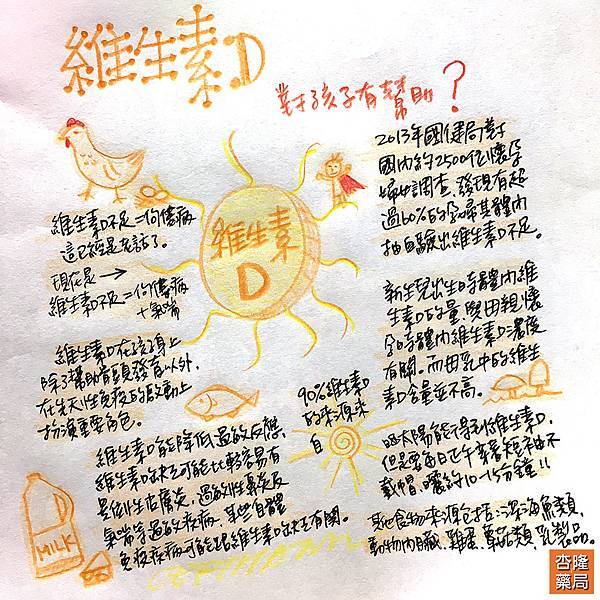 維生素D
對孩子有幫助?
維生素D不足=佝僂病
這已經是老話了。
現在是→
維生素D不足=佝僂病
+氣喘
維生素D在孩子身上
除了幫助骨頭發育以外,
在先天性免疫的啟動上
扮演重要角色。
維生素D能降低過敏反應,
維生素D缺乏可能比較容易有
異位性皮膚炎,過敏性鼻炎及
氣喘等過敏疾病,某些自體
免疫疾病可能跟維生素D缺乏有關。
MILK
維生素
D
2013年國健局對
國內約2500位懷孕
婦女調查,發現有超
過60%的孕婦其體內
抽血驗出維生素D不足。
新生兒出生時體內維
生素D的量,與母親懷
孕時體內維生素D濃度
有關。而母乳中的維生
素D含量並不高。
90%維生素D
的來源來
自
曬太陽能得到維生素D,
但是要每日正午穿著短袖不
戴帽,曬約10-15分鐘!!
其他食物來源包括:深海魚類,
動物內臟,雞蛋,蕈菇類,乳製品。
杏隆
藥局